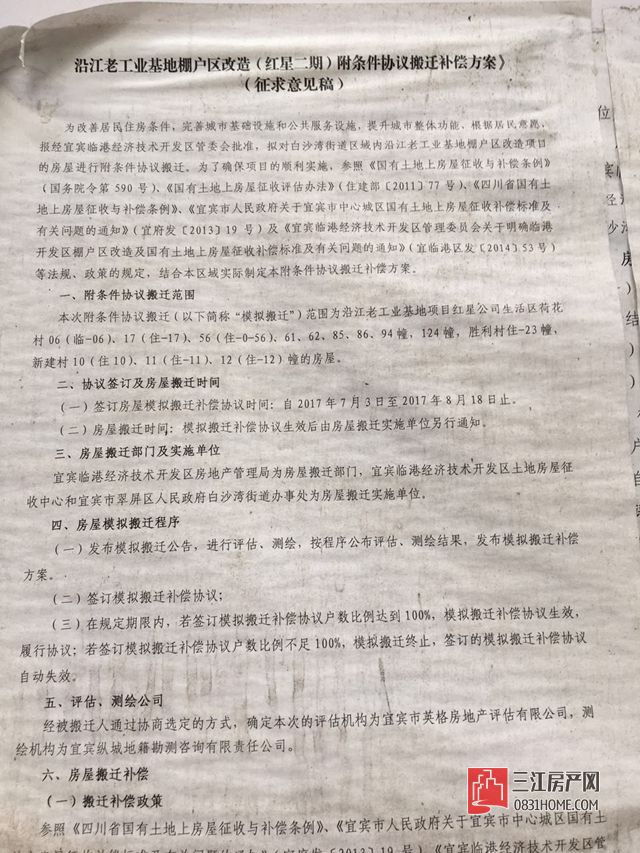 沿江老工业基地棚户区改造（红星二期）附条件协议搬迁补偿方案》
（征求意见稿）
为改善居民住房条件，完善城市基础设施和公共服务设施，提升城市整体功能，根据居民意愿，
报经宜宾临港经济技术开发区管委会批准，拟对白沙湾街道区域内沿江老工业基地棚户区改造项目
的房屋进行附条件协议搬迁。为了确保项目的顺利实施，参照《国有土地上房屋征收与补偿条例》
（国务院令第 590 号）、《国有土地上房屋征收评估办法》（住建部〔2011〕77 号）、《四川省国有土
地上房屋征收与补偿条例》、《宜宾市人民政府关于宜宾市中心城区国有土地上房屋征收补偿标准及
有关问题的通知》（宜府发〔2013〕19 号）及《宜宾临港经济技术开发区管理委员会关于明确临港
开发区棚户区改造及国有土地上房屋征收补偿标准及有关问题的通知》（宜临港区发〔2014〕53 号）
等法规、政策的规定，结合本区域实际制定本附条件协议搬迁补偿方案。
一、附条件协议搬迁范围
本次附条件协议搬迁（以下简称“模拟搬迁”）范围为沿江老工业基地项目红星公司生活区荷花
村 06（临-06）、17（住-17）、56（住-0-56）、61、62、85、86、94 幢，124 幢，胜利村住-23 幢，
新建村 10（住 10）、11（住-11）、12（住-12）幢的房屋。
二、协议签订及房屋搬迁时间
（一）签订房屋模拟搬迁补偿协议时间：自 2017 年 7 月 3 日至 2017 年 8 月 18 日止。
（二）房屋搬迁时间：模拟搬迁补偿协议生效后由房屋搬迁实施单位另行通知。
三、房屋搬迁部门及实施单位
宜宾临港经济技术开发区房地产管理局为房屋搬迁部门，宜宾临港经济技术开发区土地房屋征
收中心和宜宾市翠屏区人民政府白沙湾街道办事处为房屋搬迁实施单位。
四、房屋模拟搬迁程序
（一）发布模拟搬迁公告，进行评估、测绘，按程序公布评估、测绘结果，发布模拟搬迁补偿
方案。
（二）签订模拟搬迁补偿协议；
（三）在规定期限内，若签订模拟搬迁补偿协议户数比例达到 100%，模拟搬迁补偿协议生效，
履行协议；若签订模拟搬迁补偿协议户数比例不足 100%，模拟搬迁终止，签订的模拟搬迁补偿协议
自动失效。
五、评估、测绘公司
经被搬迁人通过协商选定的方式，确定本次的评估机构为宜宾市英格房地产评估有限公司，测
绘机构为宜宾纵城地籍勘测咨询有限责任公司。
六、房屋搬迁补偿
（一）搬迁补偿政策
参照《四川省国有土地上房屋征收与补偿条例》、《宜宾市人民政府关于宜宾市中心城区国有
三江房产网
0831HOME.COM